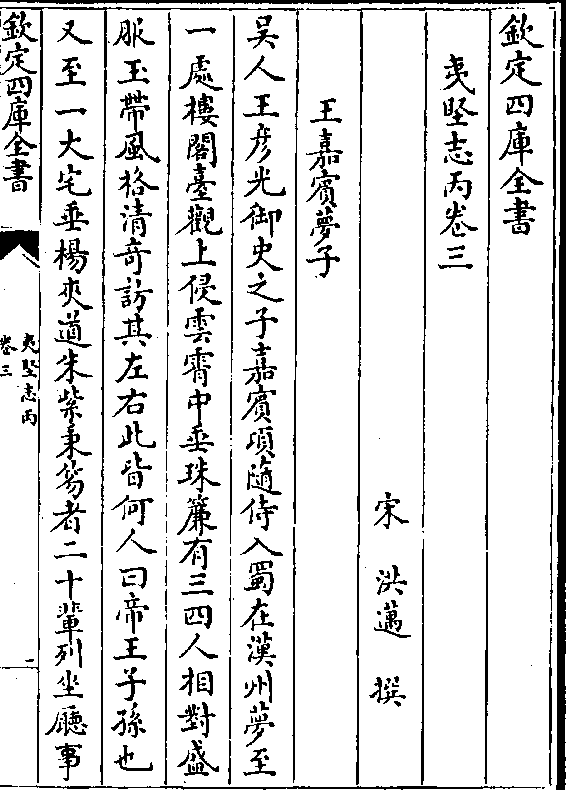 欽定四庫全書
夷堅志丙卷三
宋 洪邁 撰
王嘉賓夢子
吳人王彦光御史之子嘉賓頃隨侍入蜀在漢州夢至
一處樓閣臺觀上侵雲霄中垂珠簾有三四人相對盛
服玉帶風格清奇訪其左右此皆何人曰帝王子孫也
又至一大宅垂楊夾道朱紫秉笏者二十輩列坐廳事
欽定四庫全書
夷堅志丙
卷三
一